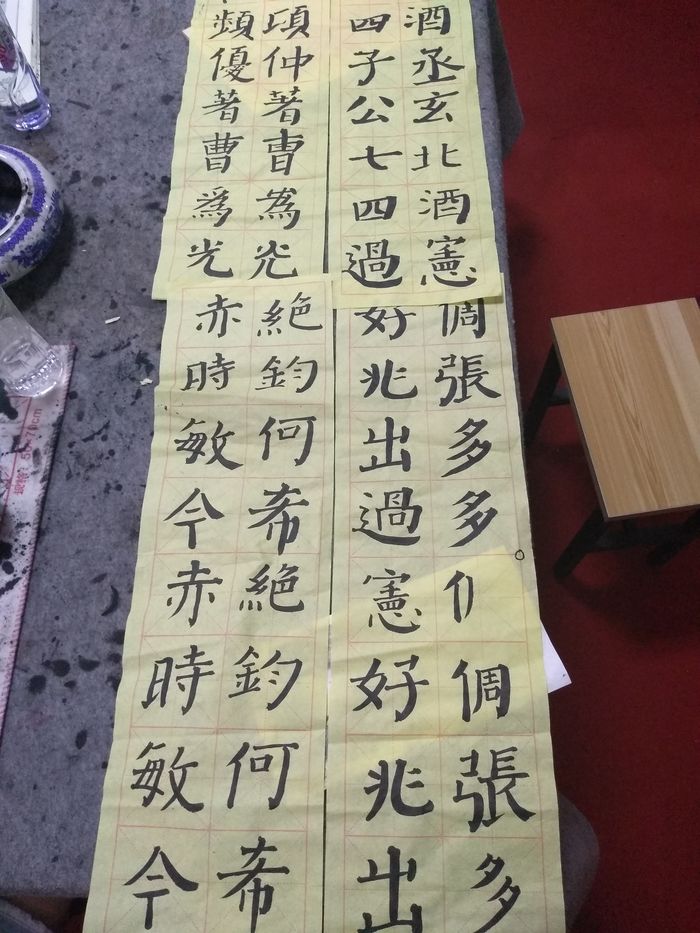 酒丞玄北酒憲
四子公七四過
項仲著曺為光
頻優著曹爲光
倜張多多亻倜張多
好兆出過憲好兆出
絶鈞何希絶鈞何希
赤時敏今赤時敏今